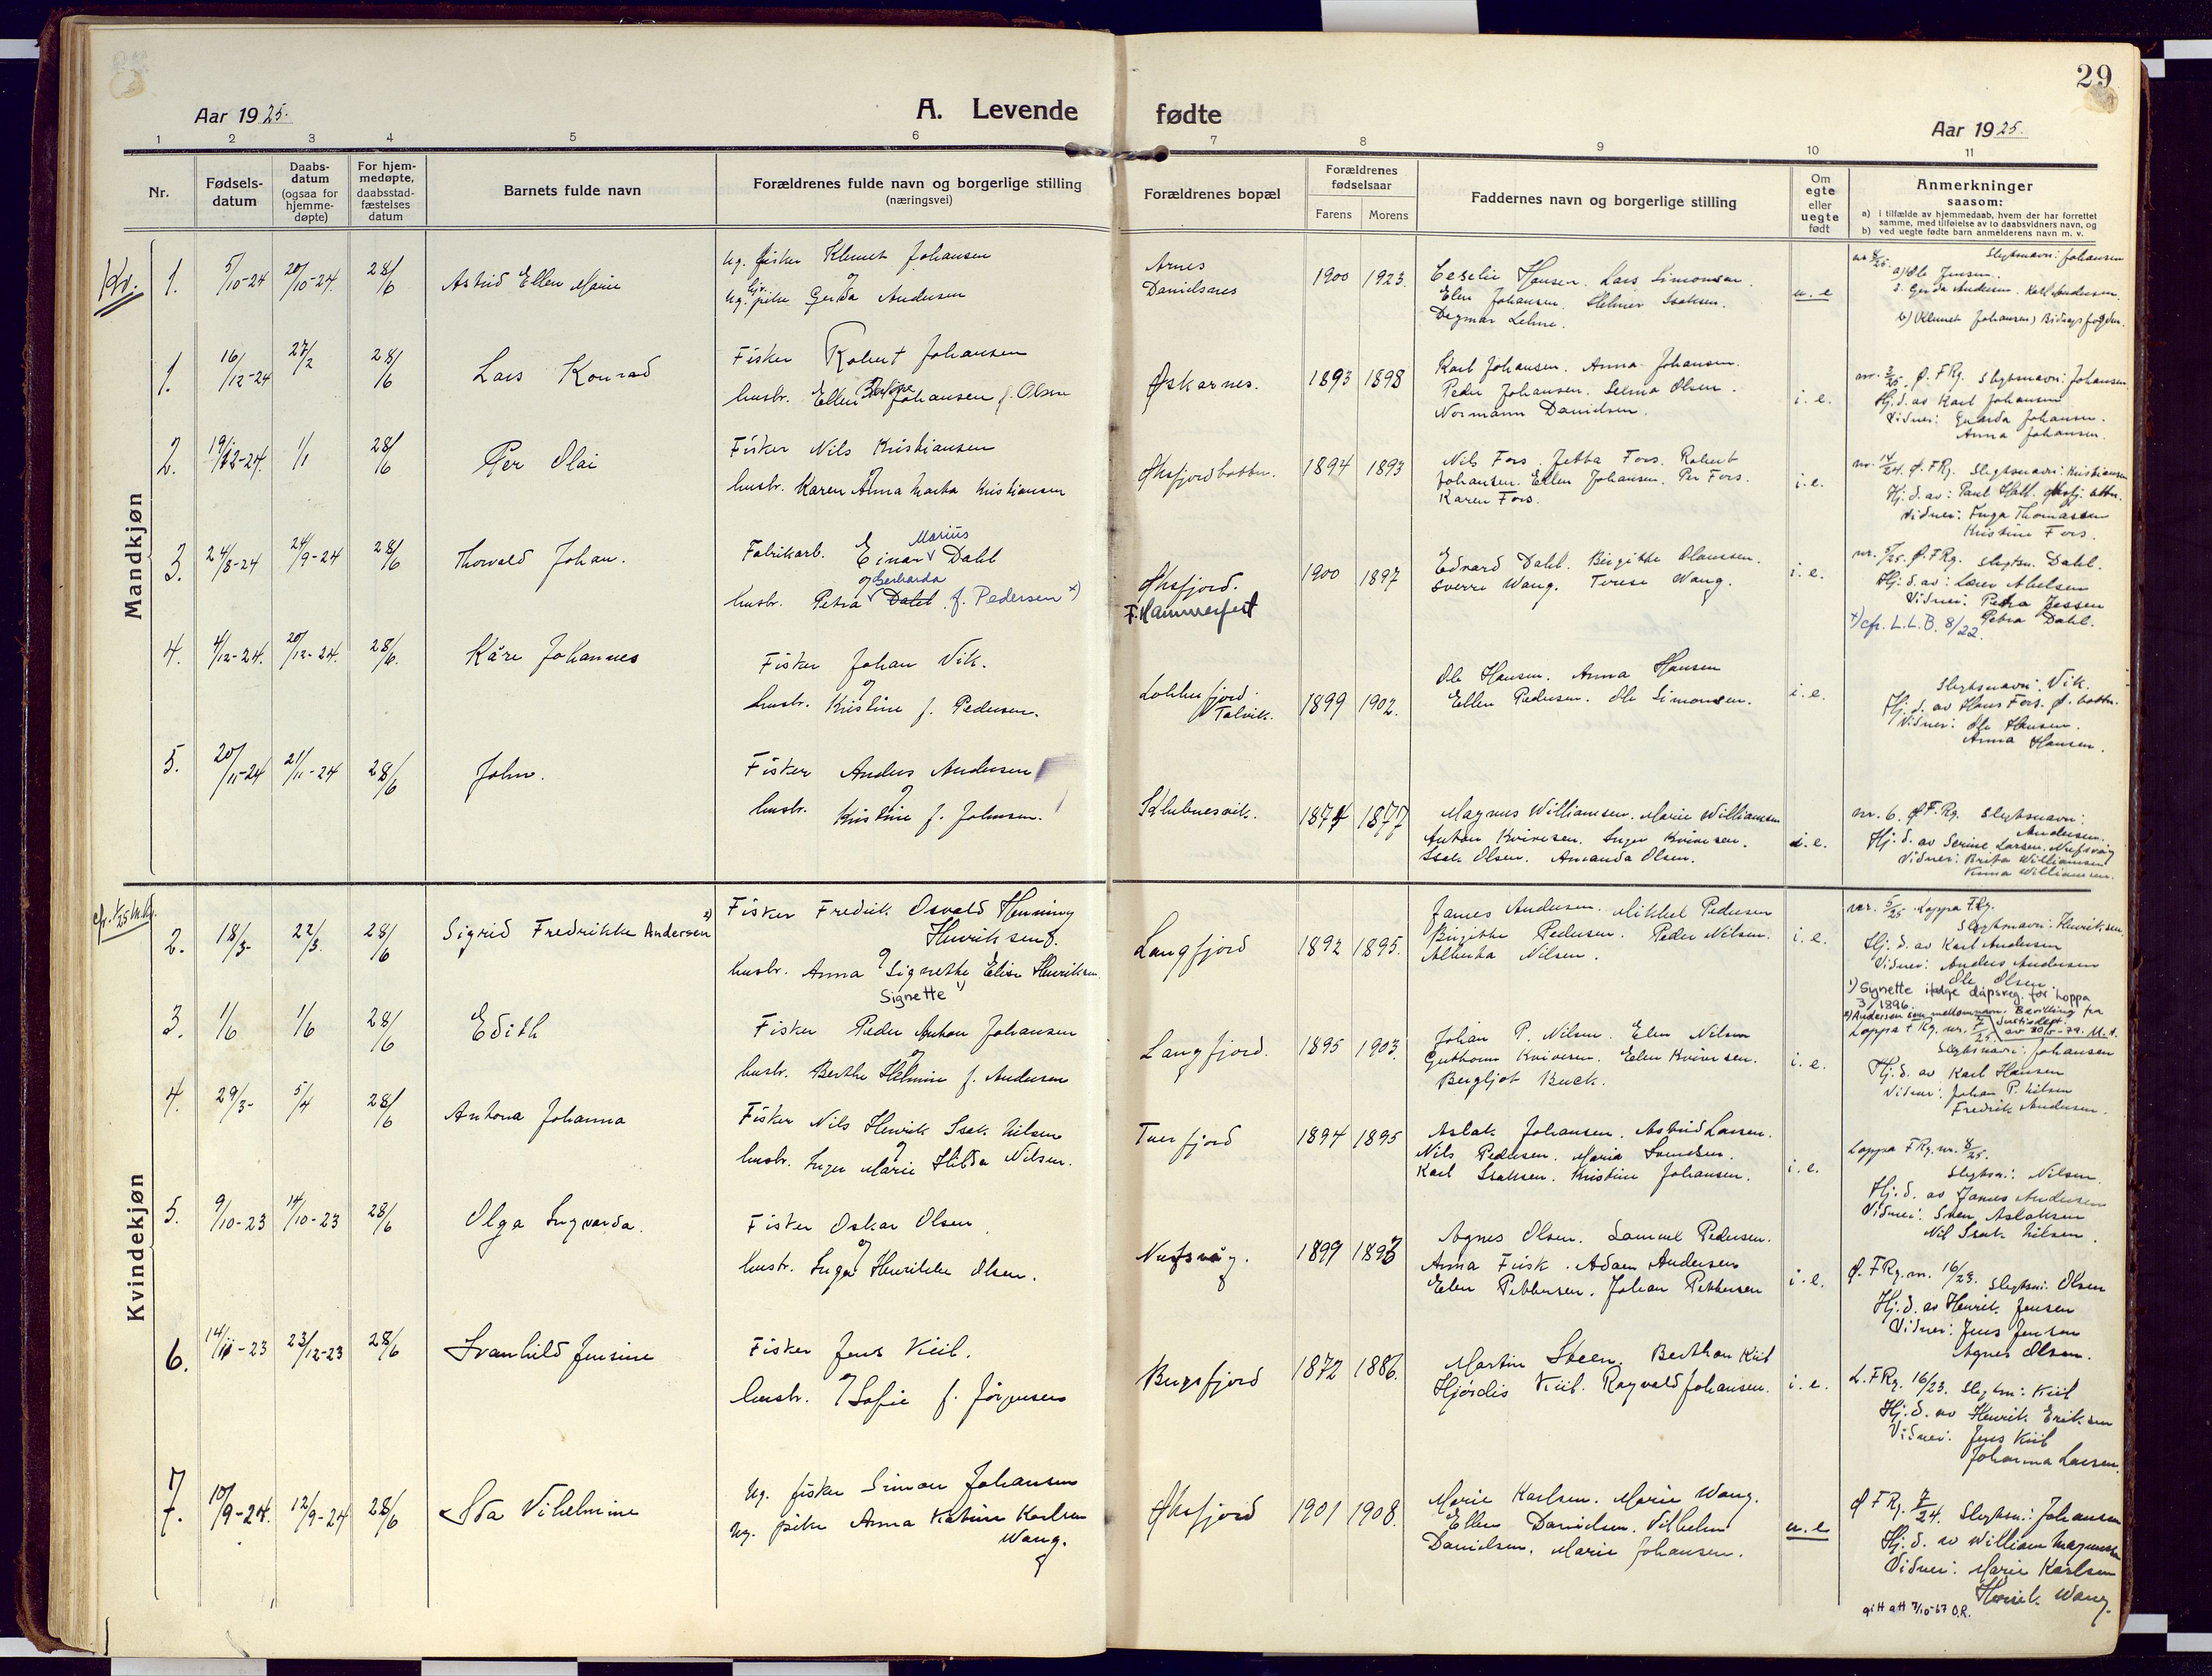 29
Aar 1925.
A. Levende
fødte
Aar 1925.
1 2 3 4 5 6 7 8 9 10 11
Nr.
Fødsels-
datum
Daabs-
datum
(ogsaa for
hjemme-
døpte)
For hjem-
medøpte,
daabsstad-
fæstelses
datum
Barnets fulde navn
Forældrenes fulde navn og borgerlige stilling
(næringsvei)
Forældrenes bopæl
Forældrenes
fødselsaar
Farens Morens
Faddernes navn og borgerlige stilling
Om
egte
eller
uegte
født
Anmerkninger
saasom:
a) i tilfælde av hjemmedaab, hvem der har forrettet
samme, med tilføielse av to daabsvidners navn, og
b) ved uegte fødte barn anmelderens navn m. v.
Mandkjøn
Kv.
1. 5/10-24 20/10-24. 28/6 Astrid Ellen Marie
ug. fisker Klemet Johansen
og
ug. pike Gerda Andersen
Arnes
Danielsnes
1900 1923.
Eeselie Hansen. Lars Simonsen.
Elen Johansen. Helmer Isaksen.
Dagmar Lehne.
u. e
Slegtsnavn: Johansen
a) Ole Jensen.
2. Gerda Andersen. Karl Andersen.
b) Klemet Johansen, Bidragsfogden.
1. 16/12-24 27/2 28/6 Lars Konrad
Fisker Robert Johansen
hustr. Ellen Johansen f. Olsen
Øskarnes.
1893 1898
Karl Johansen. Anna Johansen.
Peder Johansen. Selma Olsen.
Normann Danielsen.
i. e.
nr. 3/25. Ø. FRg. Slegtsnavn: Johansen
Hj. d. av Karl Johansen
Vidner: Johansen.
Anna Johansen.
2. 19/12-24. 1/1 28/6 Per Olai
Fisker Nils Kristiansen
og
hustr. Karen Anna Marta Kristiansen
Øksfjordbotten.
1894 1893
Nils Fors. Jetta Fors. Robert
Johansen. Ellen Johansen. Per Fors.
Karen Fors.
i. e.
nr. 14/24. Ø. FRg. Slegtsnavn: Kristiansen
Hj. d. av: Paul Hall.
Vidner: Inga Thomassen
Kristine Fors.
3. 24/8-24 24/9-24 28/6 Thorvald Johan.
Fabrikarb. Einar Marius Dahl
og
hustr. Petra Gerharda Dahl f. Pedersen x)
Øksfjord.
F. Hammerfest
1900 1897
Edvard Dahl. Birgitte Olaussen.
Sverre Wang. Terese Wang.
i. e.
Ø. FRg. Slegtsn. Dahl.
Hj. d. av: Lærer Abelsen
Vidner: Petra Jessen
Petra Dahl.
x) cfr. L.L.B. 8/22.
4. 4/12-24. 20/12-24. 28/6. Kåre Johannes
Fisker Johan Vik.
og
hustr. Kristine f. Pedersen.
Talvik.
1899 1902.
Ole Hansen. Anna Hansen
Ellen Pedersen. Ole Simonsen.
i. e.
Slegtsnavn: Vik.
Hj. d. av Hans Fors. Ø. botten.
Vidner: Ole Hansen.
Anna Hansen.
5. 20/11-24 21/11-24 28/6 John.
Fisker Anders Andersen
og
hustr. Kristine f. Johnsen.
Sklubnesvik.
1874 1877
Magnus Williamsen. Marie Williamsen
Anton Kvivesen. Inger Kvivesen.
Isak Olsen. Amanda Olsen.
i. e.
nr. 6. Ø F. Rg. Slegtsnavn:
Andersen.
Hj. d. av Serine Larsen. Nufsvåg
Vidner: Brita Williamsen
Anna Williamsen.
Kvindekjøn
cfr. 1/25 M.kj.
2. 18/3- 22/3. 28/6 Sigrid Fredrikke Andersen 2)
Fisker Fredrik Osvald Henning
Henriksen.
og
hustr. Anna Signethe Elise Henriksen
Signette 1)
Langfjord
1892 1895.
James Andersen. Mikkel Pedersen
Birgitte Pedersen. Peder Nilsen.
Alberta Nilsen.
i. e.
nr. 5/25 Loppa FRg.
Slegtsnavn: Henriksen.
Hj. d. av Karl Andersen
Vidner: Anders Andersen
Ole Olsen.
1) Signette ifølge dåpsreg. for Loppa
3/1896.
2) Andersen som mellomnavn. Bevilling fra
Justisdept.
av 20/5-79. M.A.
3. 1/6 1/6 28/6 Edith
Fisker Peder Anton Johansen
og
hustr. Berthe Helmine f. Andersen
Langfjord.
1895 1903.
Johan P. Nilsen. Elen Nilsen
Guthorm Kvivesen. Elen Kvivesen.
Bergljot Buck.
i. e.
Loppa F Rg. nr. 7/25.
Slegtsnavn: Johansen
Hj. d. av Karl Hansen
Vidner: Johan P. Nilsen
Fredrik Andersen.
4. 29/3- 5/4 28/6 Antona Johanna
Fisker Nils Henrik Isak Nilsen
og
hustr. Inger Marie Hilda Nilsen.
Tverfjord
1894 1895
Aslak Johansen. Astrid Larsen.
Nils Pedersen. Maria Svendsen.
Karl Isaksen. Kristine Johansen.
i. e.
Loppa FRg. nr. 8/25.
Slegtsn.: Nilsen.
Hj. d. av James Andersen
Vidner: Sven Aslaksen
Nil Isak Nilsen.
5. 9/10-23 14/10-23 28/6 Olga Ingvarda.
Fisker Oskar Olsen
og
hustr. Inga Henrikke Olsen.
Nufsvåg.
1899 1893
Agnes Olsen. Samuel Pedersen.
Anna Fisk. Adam Andersen
Elen Pettersen. Johan Pettersen
i. e.
Ø. FRg. nr. 16/23. Slegtsn: Olsen
Hj. d. av Henrik Jensen
Vidner: Jens Jensen
Agnes Olsen.
6. 14/11-23 23/12-23 28/6 Svanhild Jensine
Fisker Jens Kiil.
hustr. og Sofie f. Jørgensen
Bergsfjord
1872 1886.
Martin Steen. Berthon Kiil
Hjørdis Kiil. Ragvald Johansen.
i. e.
L. FRg. 16/23. Slegtsn: Kiil
Hj. d. av Henrik Eriksen
Vidner: Jens Kiil
Johanna Larsen.
7. 10/9-24. 12/9-24 28/6 Ida Vilhelmine
ug. fisker Simon Johansen
ug. pike Anna Katrine Karlsen
Wang.
Øksfjord
1901 1908.
Marie Karlsen. Marie Wang.
Ellen Danielsen. Vilhelm
Danielsen. Marie Johansen.
u. e
Ø FRg. 7/24. Slegtsn: Johansen
Hj. d. av William Magnussen
Vidner: Marie Karlsen
Henrik Wang.
gitt att 7/10-67 O.R.